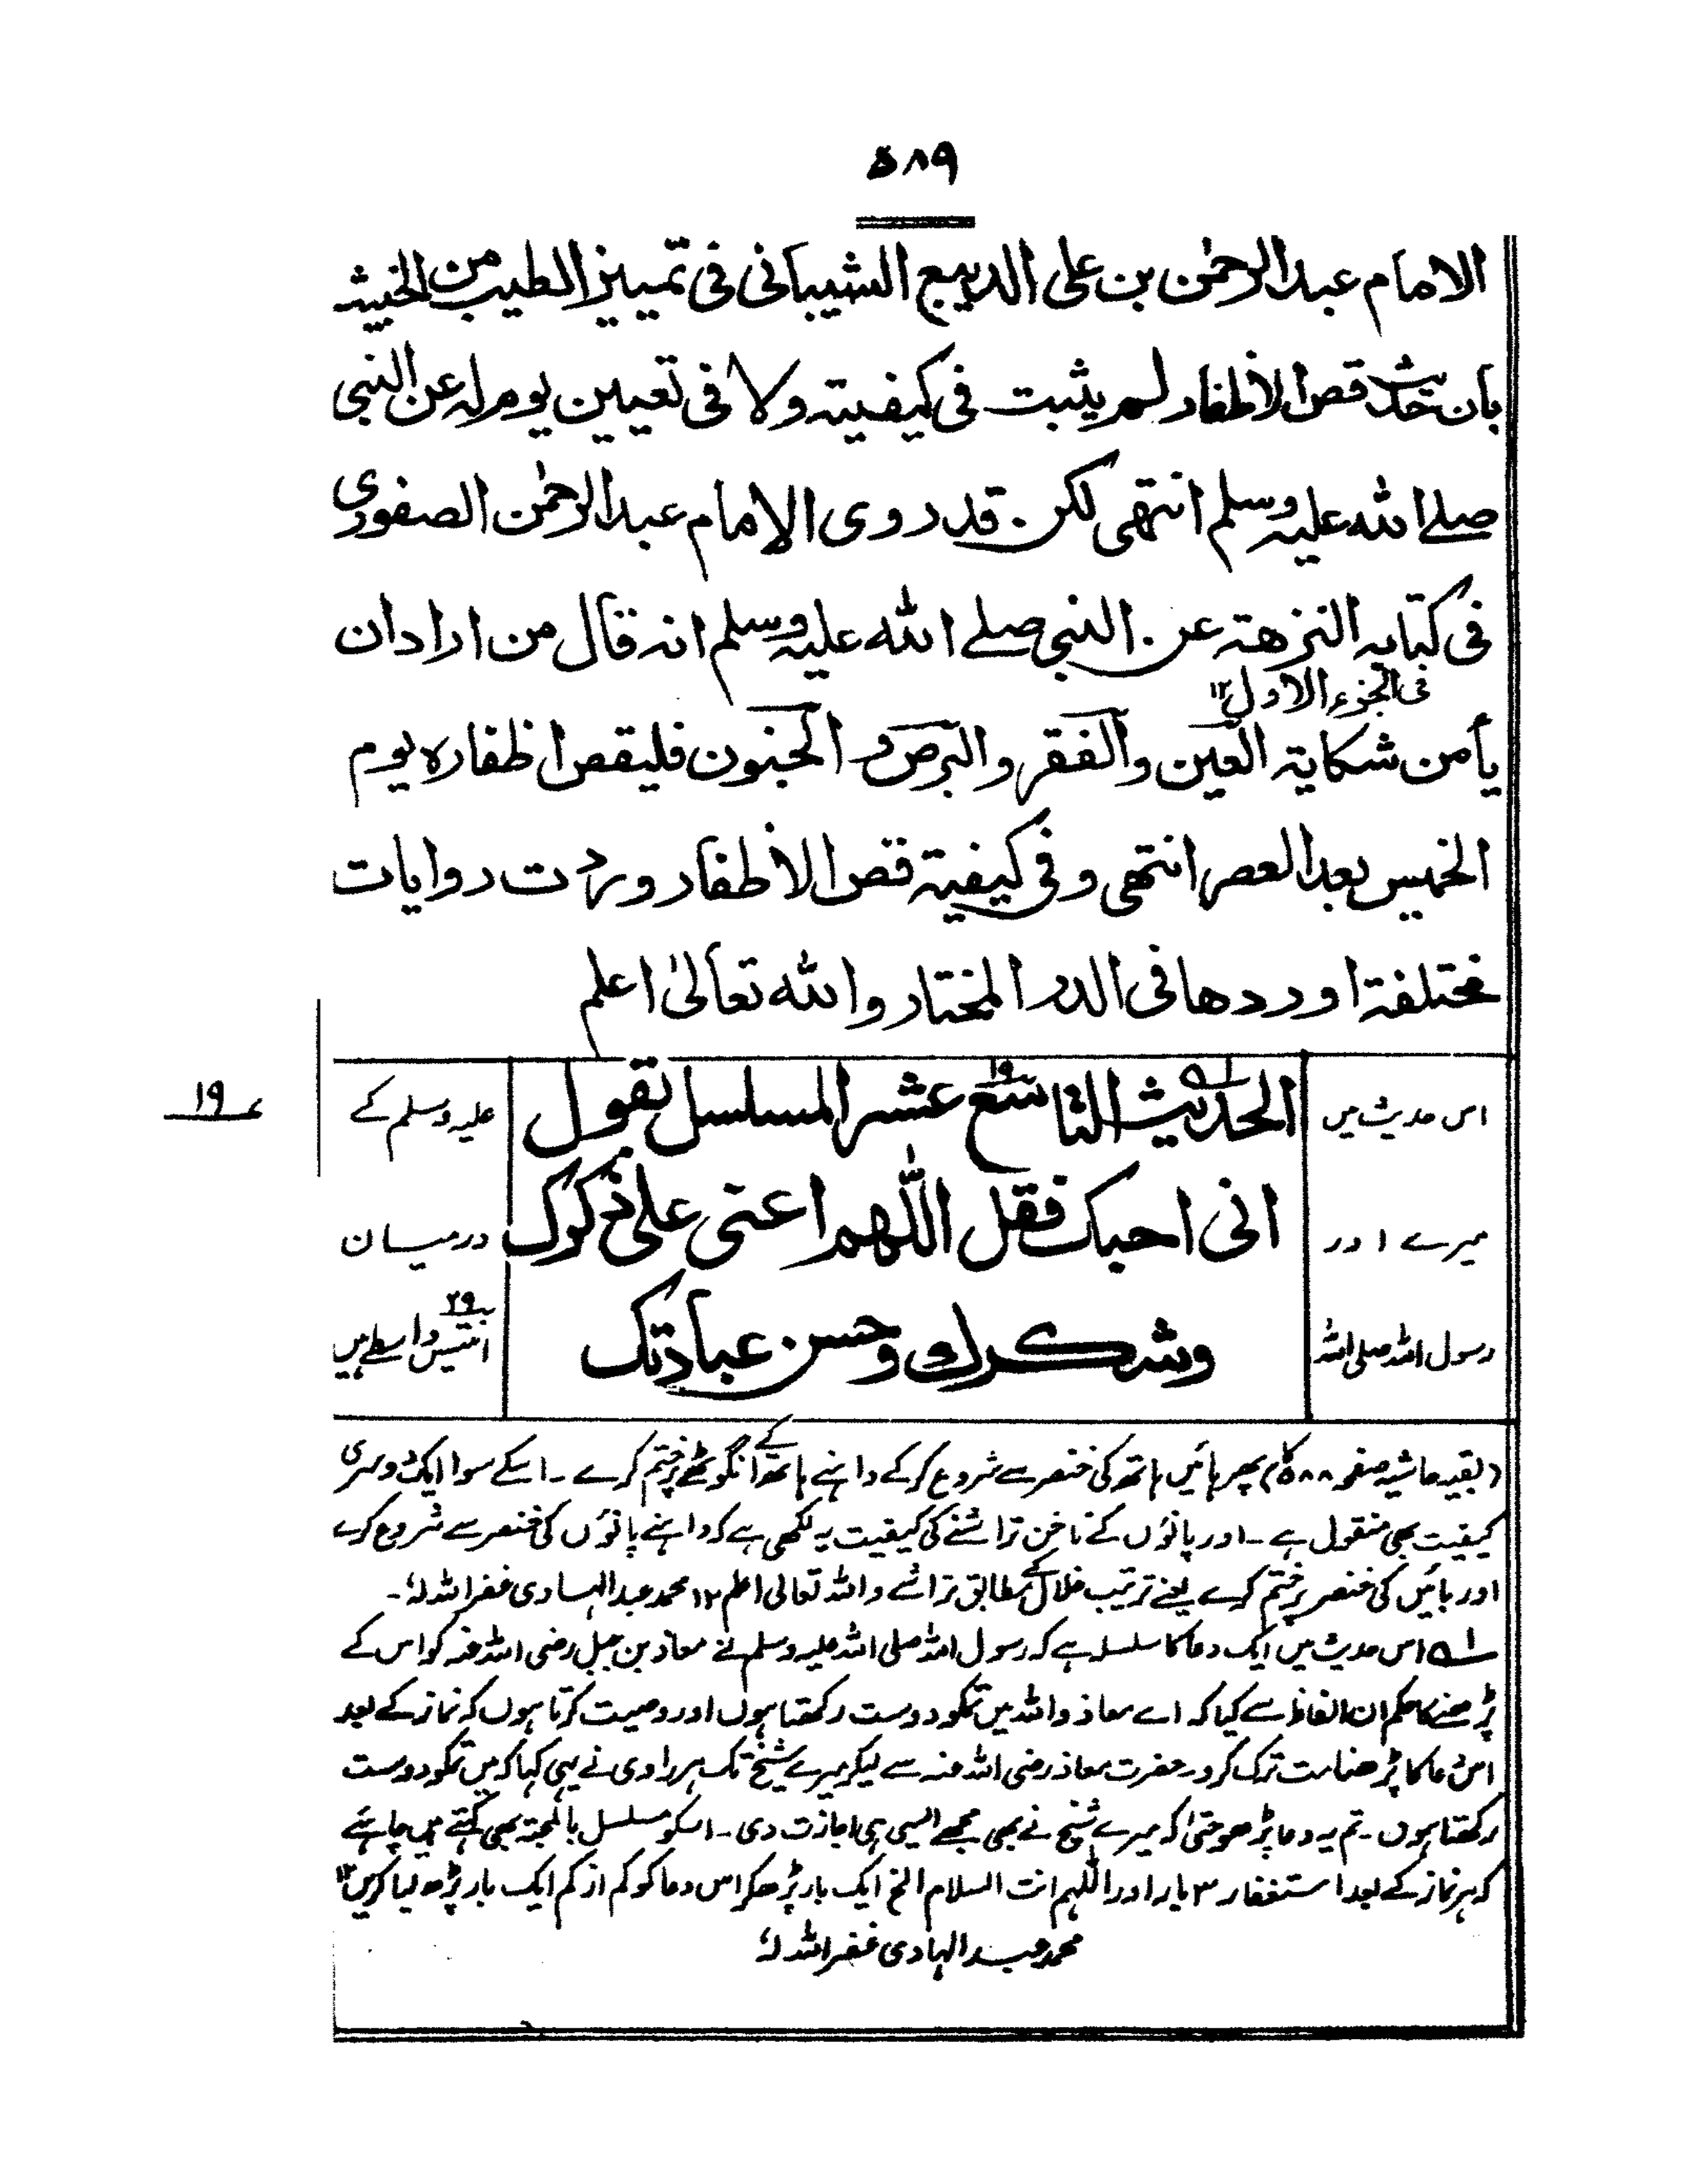 ۵۸۹
الامام عبدالرحمٰن بن علی الدیبع الشیبانی فی تمییز الطیب من الخبیث
بأن حدیث قص الاظفار لم یثبت فی کیفیته ولا فی تعیین یوم له عن النبی
صلے الله علیه وسلم انتهی لکن قد روی الإمام عبدالرحمٰن الصفوری
فی کتابه النزهة عن النبی صلے الله علیه وسلم انه قال من اراد ان
فی الجزء الاول ۱۲
یأمن شکایة العین والفقر والبرص و الجنون فلیقص اظفاره یوم
الخمیس بعد العصر انتهی وفی کیفیة قص الاظفار وردت روایات
مختلفة اوردها فی الدر المختار والله تعالیٰ اعلم
اس حدیث میں
میرے اور
رسول اللہ صلی اللہ
الحدیث التاسع عشر المسلسل بقول
۱۹
انی احبک فقل اللّٰهم اعنی علی ذکرک
وشکرك وحسن عبادتک
علیہ وسلم کے
درمیان
۲۹
انتیس واسطے ہیں
۱۹
(بقیہ حاشیہ صفحہ ۵۸۸ کا) پھر بائیں ہاتھ کی خنصر سے شروع کرکے داہنے ہاتھ کے انگوٹھے پر ختم کرے ۔ اسکے سوا ایک دوسری
کیفیت بھی منقول ہے ۔ اور پانؤں کے ناخن تراشنے کی کیفیت یہ لکھی ہے کہ داہنے پانؤں کی خنصر سے شروع کرے
اور بائیں کی خنصر پر ختم کرے یعنے ترتیب خلال کے مطابق تراشے واللہ تعالی اعلم ۱۲ محمد عبدالہادی غفر اللہ لہٗ ۔
۱ اس حدیث میں ایک دعا کا سلسلہ ہے کہ رسول اللہ صلی اللہ علیہ وسلم نے معاذ بن جبل رضی اللہ عنہ کو اس کے
پڑھنے کا حکم ان الفاظ سے کیا کہ اے معاذ واللہ میں تمکو دوست رکھتا ہوں اور وصیت کرتا ہوں کہ نماز کے بعد
اس دعا کا پڑھنا مت ترک کرو ۔ حضرت معاذ رضی اللہ عنہ سے لیکر میرے شیخ تک ہر راوی نے یہی کہا کہ میں تمکو دوست
رکھتا ہوں ۔ تم یہ دعا پڑھو حتی کہ میرے شیخ نے بھی مجھے ایسی ہی اجازت دی ۔ اسکو مسلسل بالمحبة بھی کہتے ہیں چاہئے
کہ ہر نماز کے بعد استغفار ۳ بار اور اللّٰہم انت السلام الخ ایک بار پڑھکر اس دعا کو کم از کم ایک بار پڑھ لیا کریں ۱۲
محمد عبدالہادی غفر اللہ لہٗ